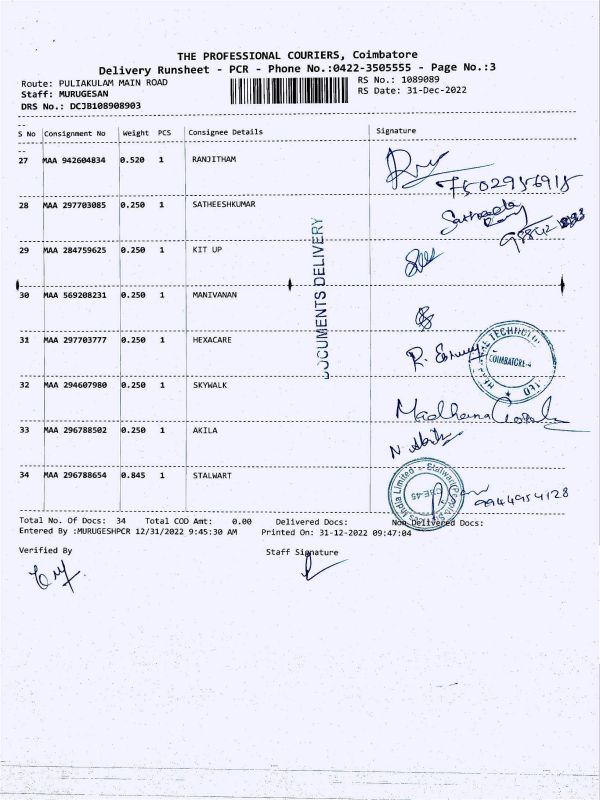 THE PROFESSIONAL COURIERS, Coimbatore
Delivery Runsheet - PCR - Phone No.:0422-3505555 - Page No.:3
Route: PULIAKULAM MAIN ROAD
RS No.: 1089089
Staff: MURUGESAN
RS Date: 31-Dec-2022
DRS No.: DCJB108908903
S No Consignment No Weight PCS Consignee Details Signature
27 MAA 942604834 0.520 1 RANJITHAM
7502956915
28 MAA 297703085 0.250 1 SATHEESHKUMAR
29 MAA 284759625 0.250 1 KIT UP
30 MAA 569208231 0.250 1 MANIVANAN
DOCUMENTS DELIVERY
31 MAA 297703777 0.250 1 HEXACARE
COIMBATORE
32 MAA 294607980 0.250 1 SKYWALK
Madhana Gopal
33 MAA 296788502 0.250 1 AKILA
34 MAA 296788654 0.845 1 STALWART
9944954128
Total No. Of Docs: 34 Total COD Amt: 0.00 Delivered Docs: Non-Delivered Docs:
Entered By :MURUGESHPCR 12/31/2022 9:45:30 AM Printed On: 31-12-2022 09:47:04
Verified By Staff Signature